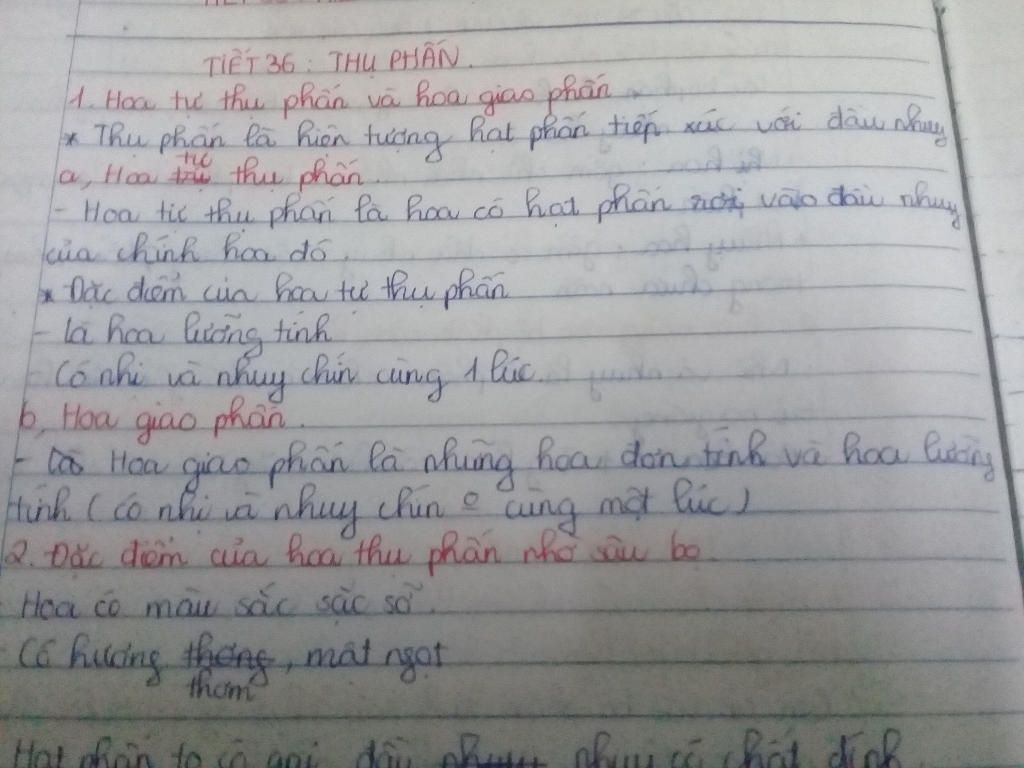 TIẾT 36: THỤ PHẤN.
1. Hoa tự thụ phấn và hoa giao phấn
* Thụ phấn là hiện tượng hạt phấn tiếp xúc với đầu nhụy
a, Hoa tự thụ phấn.
- Hoa tự thụ phấn là hoa có hạt phấn rơi vào đầu nhụy
của chính hoa đó.
* Đặc điểm của hoa tự thụ phấn
- là hoa lưỡng tính
- Có nhị và nhụy chín cùng 1 lúc.
b, Hoa giao phấn.
- Hoa giao phấn là những hoa đơn tính và hoa lưỡng
tính (có nhị và nhụy chín o cùng một lúc)
2. Đặc điểm của hoa thụ phấn nhờ sâu bọ
Hoa có màu sắc sặc sỡ.
Có hương thơm, mật ngọt
Hạt phấn to có gai đầu nhụy có chất dính.